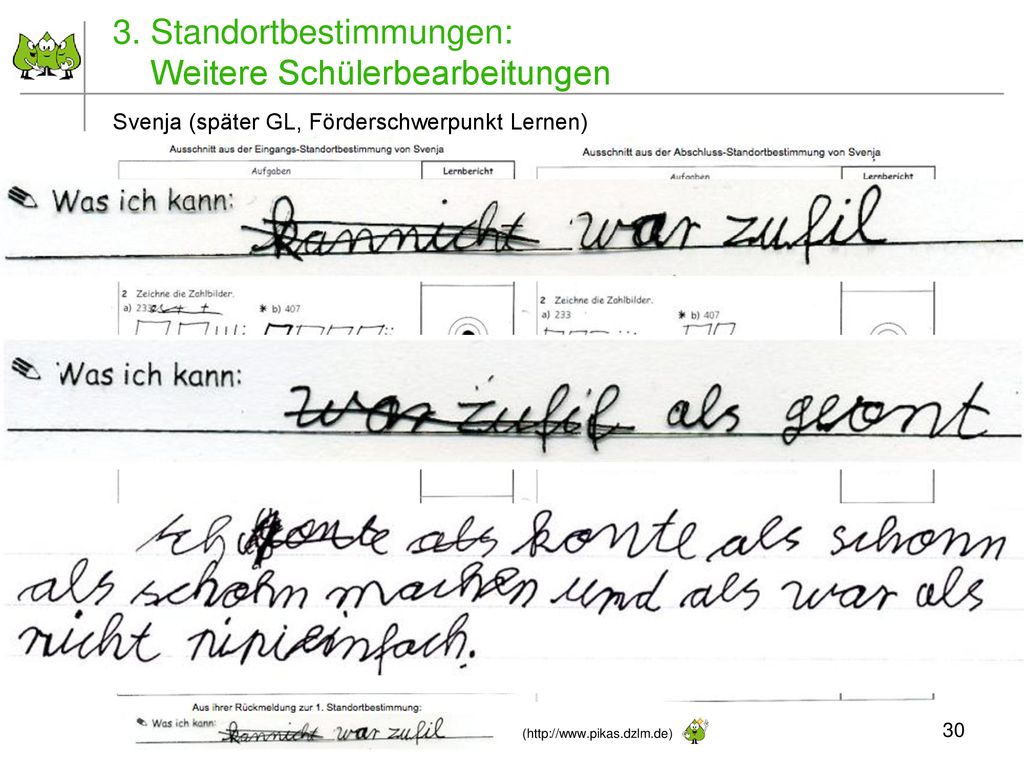 3. Standortbestimmungen:
Weitere Schülerbearbeitungen
Svenja (später GL, Förderschwerpunkt Lernen)
Ausschnitt aus der Eingangs-Standortbestimmung von Svenja
Ausschnitt aus der Abschluss-Standortbestimmung von Svenja
Aufgaben Lernbericht
Aufgaben Lernbericht
Was ich kann: kannnicht war zufil
2 Zeichne die Zahlbilder.
a) 233 * b) 407
2 Zeichne die Zahlbilder.
a) 233 * b) 407
Was ich kann: war zufil als geont
Ich konte als konte als schonn
als schohn machen und als war als
nicht ripieinfach.
Aus ihrer Rückmeldung zur 1. Standortbestimmung:
Was ich kann: kannnicht war zufil
(http://www.pikas.dzlm.de)
30